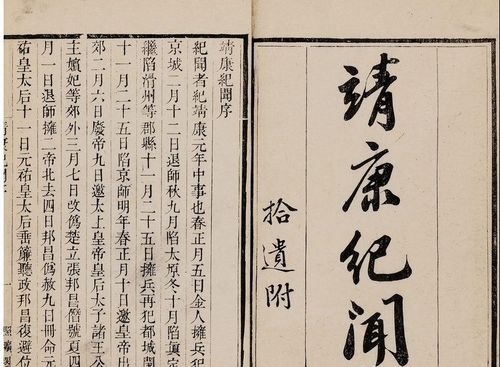 靖康紀聞
拾遺附
靖康紀聞序
紀聞者紀靖康元年中事也春正月五日金人擁兵犯
京城二月十二日退師秋九月陷太原冬十月陷眞定
繼陷滑州等郡縣十一月二十五日擁兵再犯都城閏
十一月二十五日陷京師明年春正月十日邀皇帝出
郊二月六日廢帝九日邀太上皇帝皇后太子諸王公
主嬪妃等郊外三月七日改僞楚立張邦昌僭號夏四
月一日退師擁二帝北去四日邦昌僞赦九日冊命元
祐皇太后十一日元祐皇太后垂簾聽政邦昌復避位